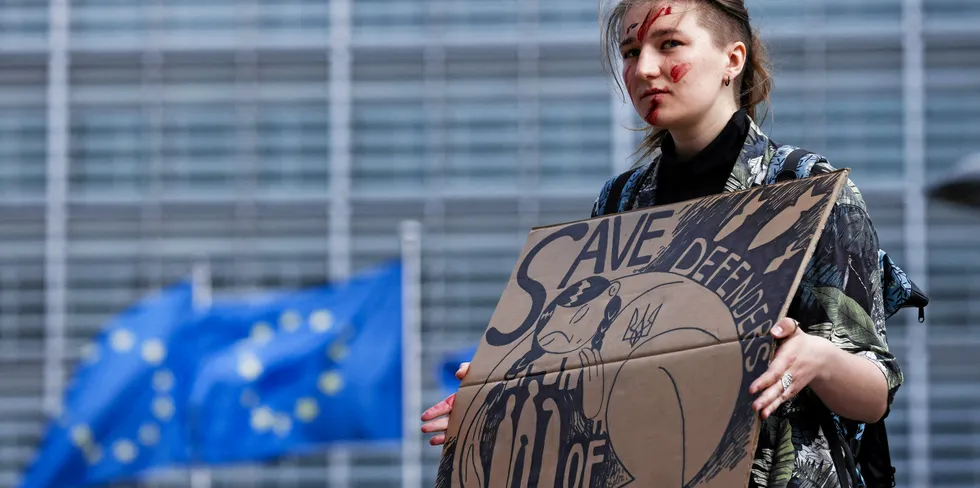 SAVE
DEFENDERS
OF